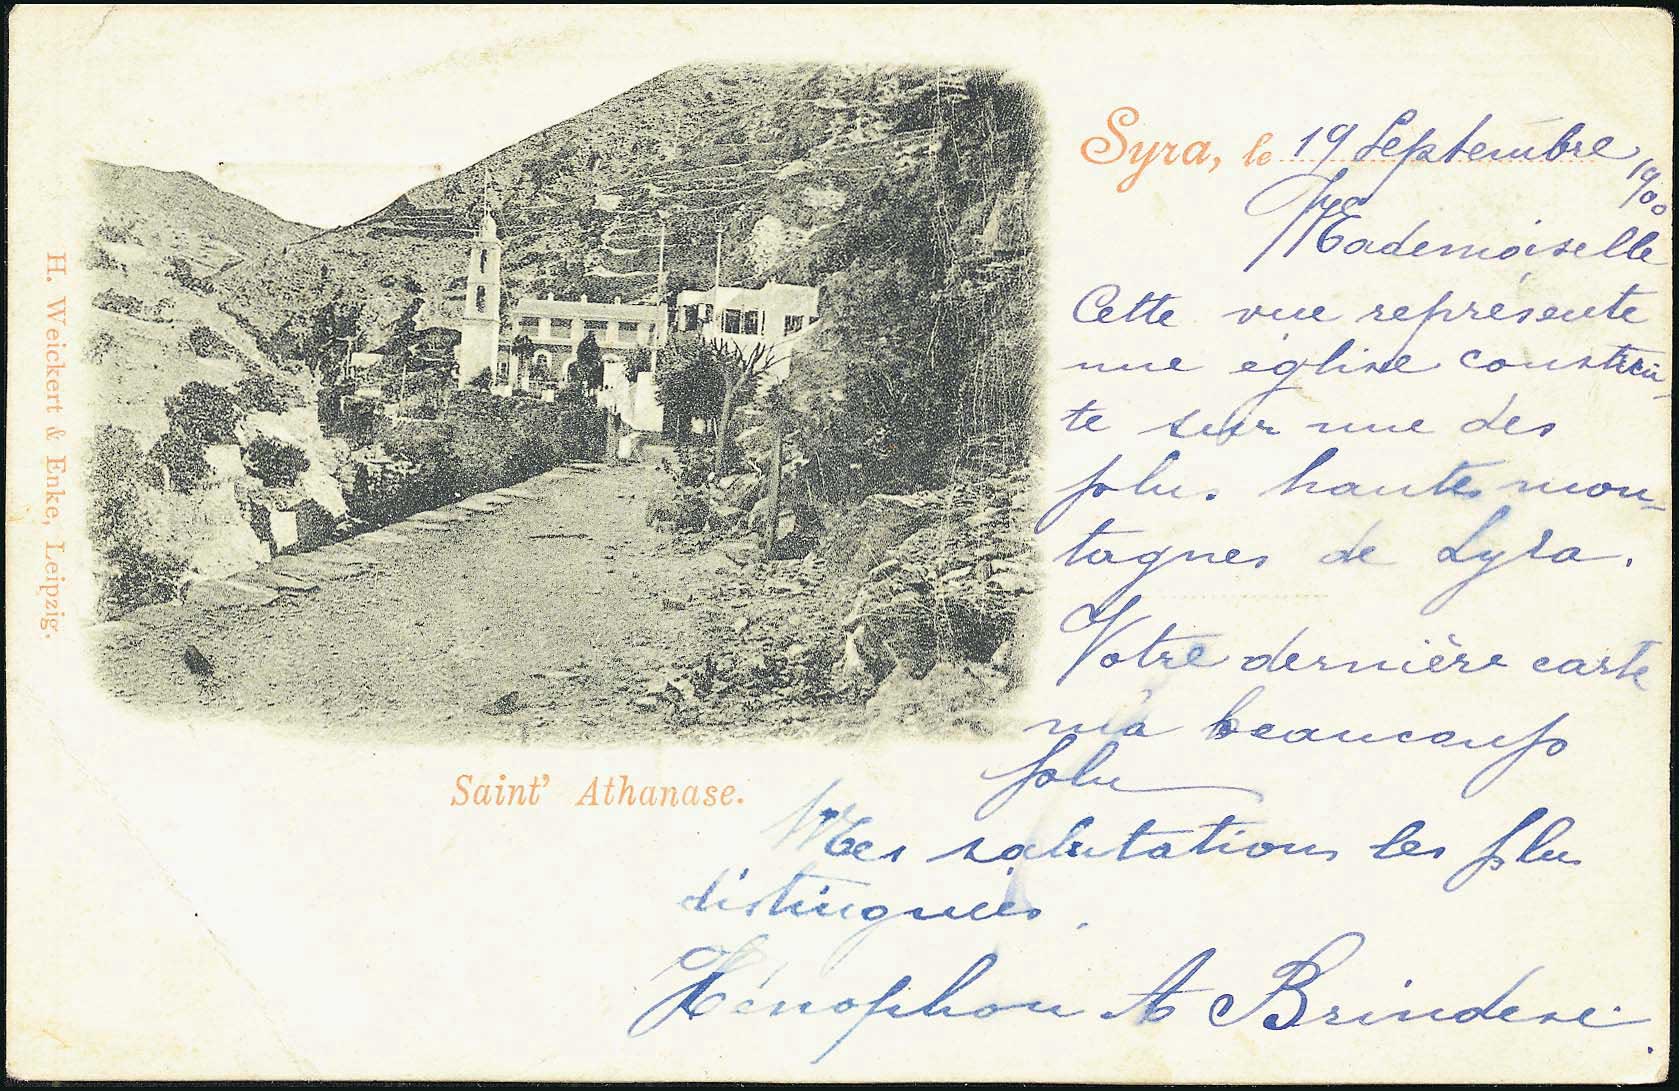 Syra, le 19 Septembre 1900
Mademoiselle
Cette vue représente
une église constrcui-
te sur une des
plus hautes mon-
tagnes de Syra.
Votre dernière carte
m'a beaucoup
plu
Mes salutations les plus
distinguées.
Xénophon A Brindesi.
Saint' Athanase.
H. Weickert & Enke, Leipzig.